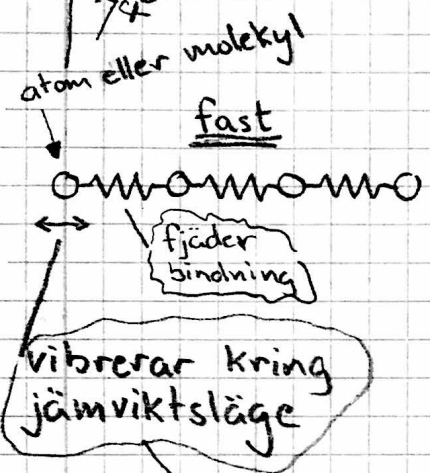 atom eller molekyl
fast
fjäder
bindning
vibrerar kring
jämviktsläge